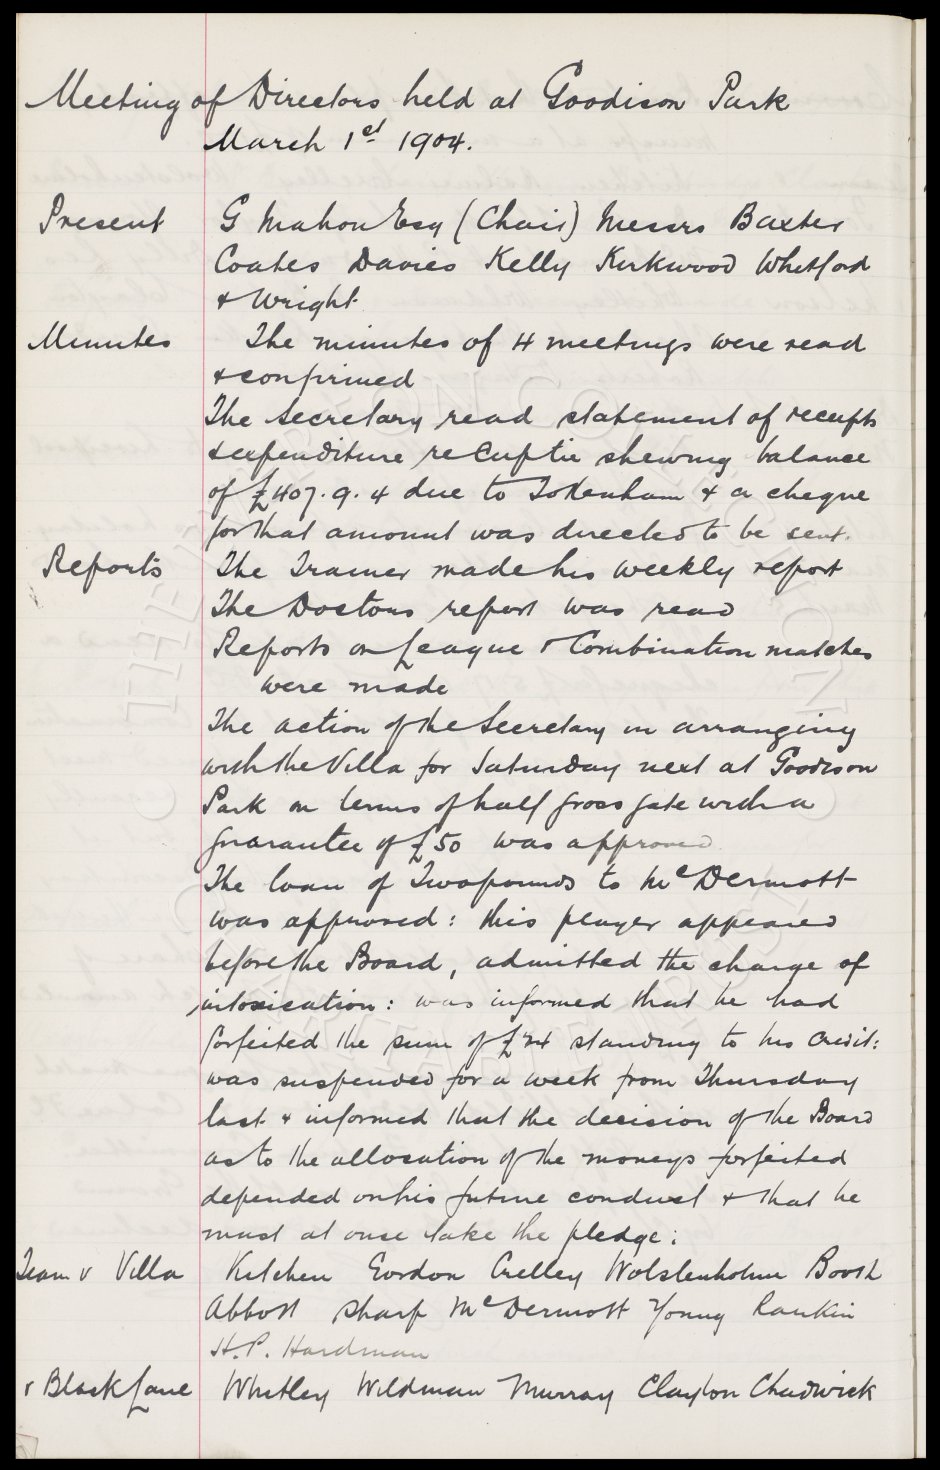 Meeting of Directors held at Goodison Park
March 1st 1904.
Present G Mahon Esq (Chair) Messrs Baxter
Coates Davies Kelly Kirkwood Whitford
& Wright
Minutes The minutes of 4 meetings were read
& confirmed
The Secretary read statement of receipts
& expenditure re Cuptie shewing balance
of £407.9.4 due to Tottenham & a cheque
for that amount was directed to be sent.
Reports The Trainer made his weekly report
The Doctors report was read
Reports on League & Combination matches
were made
The action of the Secretary in arranging
with the Villa for Saturday next at Goodison
Park on terms of half gross gate with a
guarantee of £50 was approved
The loan of Two pounds to McDermott
was approved: this player appeared
before the Board, admitted the charge of
intoxication: was informed that he had
forfeited the sum of £24 standing to his credit:
was suspended for a week from Thursday
last & informed that the decision of the Board
as to the allocation of the moneys forfeited
depended on his future conduct & that he
must at once take the pledge:
Team v Villa Kitchen Gordon Crelley Wolstenholme Booth
Abbott Sharp McDermott Young Rankin
H.P. Hardman
v Black Lane Whitley Wildman Murray Clayton Chadwick